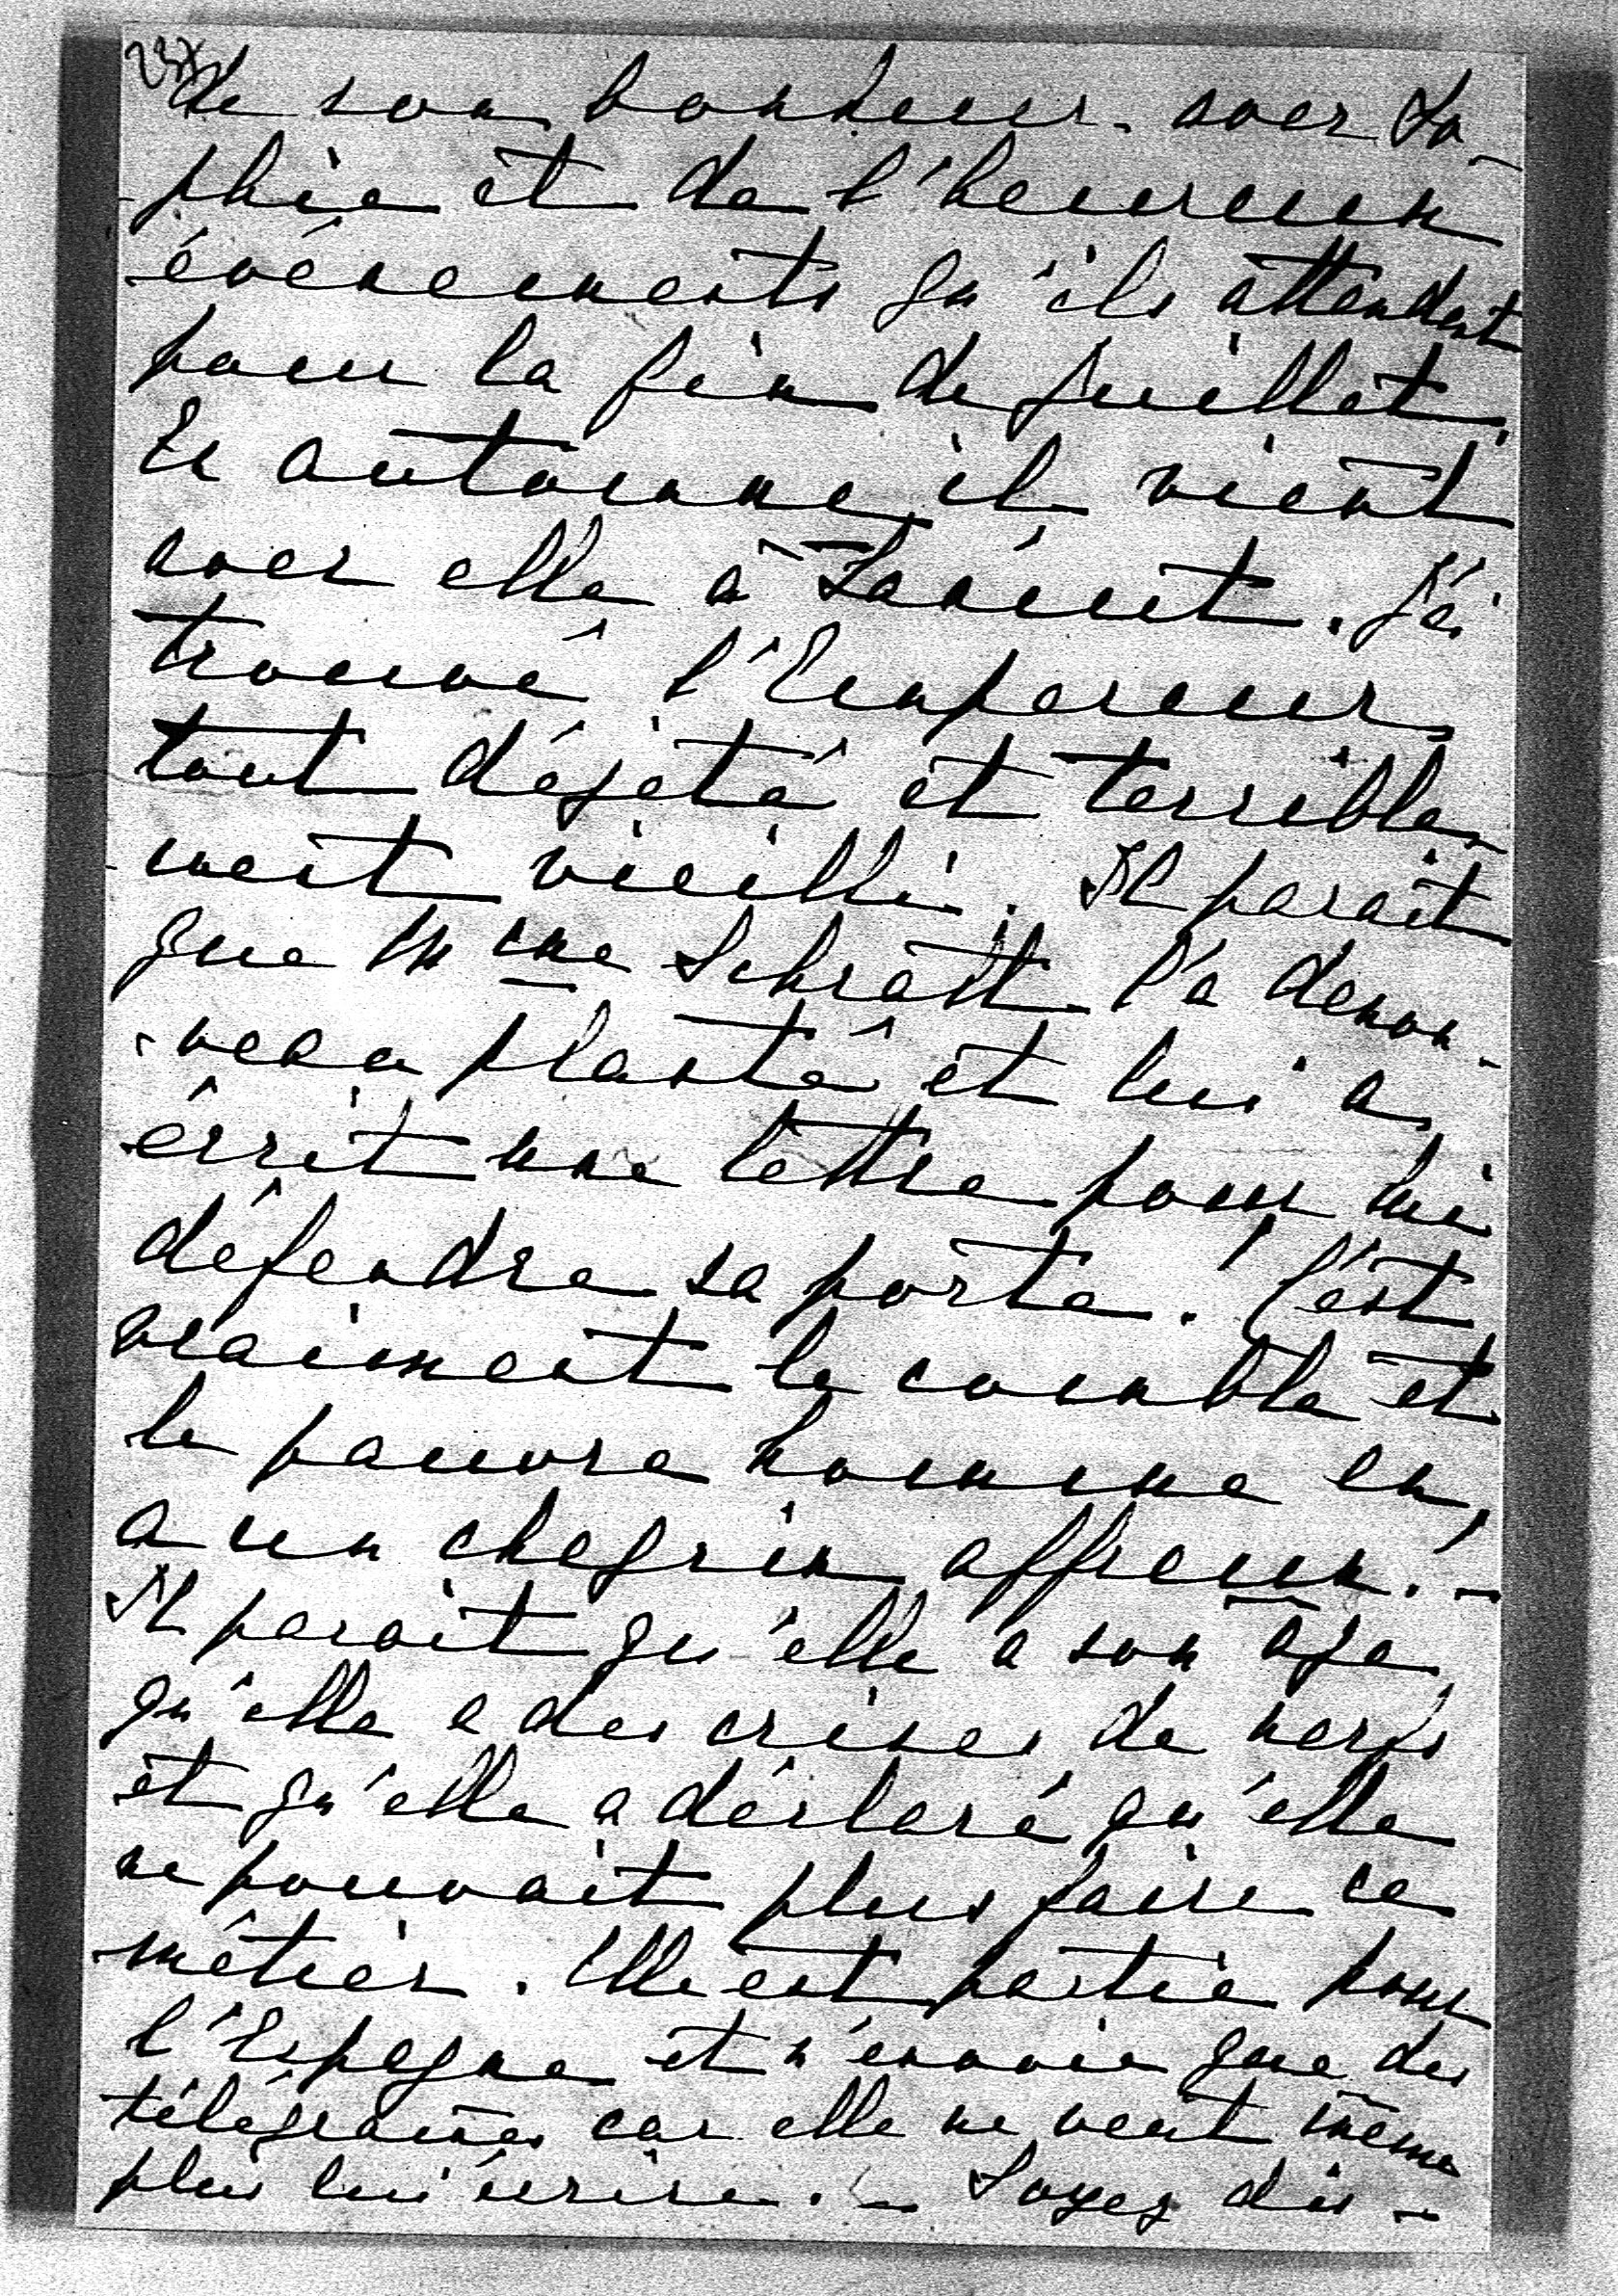 de son bonheur avec So-
phie et de l'heureux
événements qu'ils attendent
pour la fin de Juillet.
En automne il vient
avec elle à Lancut. J'ai
trouvé l'Empereur
tout déjeté et terrible-
ment vieilli. Il parait
que Mme Schratt l'a denou-
veau planté et lui a
écrit une lettre pour lui
défendre sa porte! C'est
vraiment le comble et
le pauvre homme en
a un chagrin affreux! -
Il parait qu'elle a son âge
qu'elle a des crises de nerfs
et qu'elle a déclaré qu'elle
ne pouvait plus faire ce
métier. Elle est partie pour
l'Espagne et n'envoie que des
télégrames car elle ne veut même
plus lui écrire. - Soyez dis-